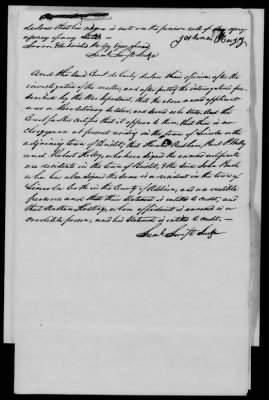 declares that his name is not on the pension roll of the agency
of any State
Sworn to & subscribed the day & year aforesaid
And the said Court do hereby declare their opinion after the
investigation of the matter, and after putting the interrogatories pre-
scribed by the War Department, that the above named applicant
was a Revolutionary soldier, and served as he states. And the
Court further certifies that it appears to them, that there is no
clergyman at present residing in the town of Lincoln or the
adjoining town of Bristol; that
and Robert Holley, who have signed the annexed certificate
are residents in the town of Bristol, & the said John
who has also signed the same is a resident in the town of
Lincoln both in the County of Addison, and are credible
persons and that their statement is entitled to credit; and
that Nathan, whose affidavit is annexed is a
credible person, and his statement is entitled to credit.
Swift